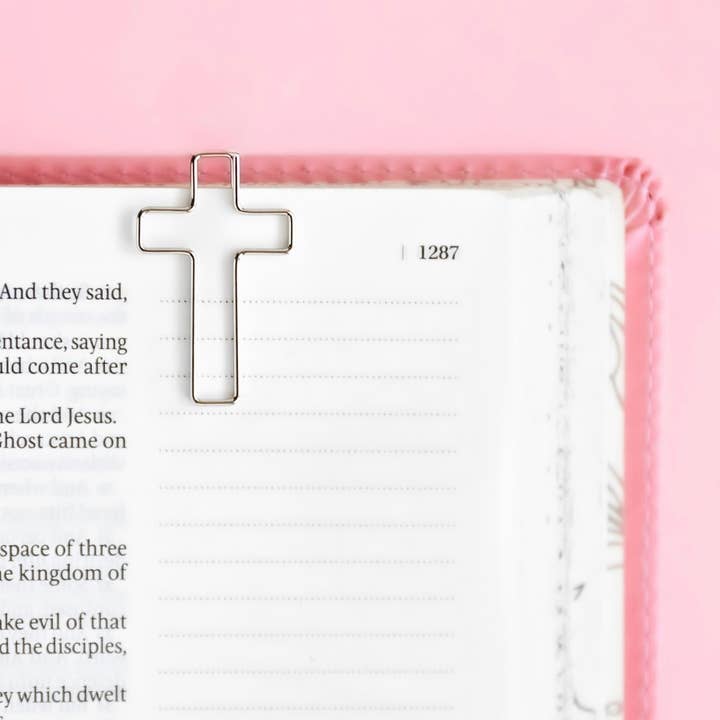 | 1287
And they said,
saying
come after
Lord Jesus.
came on
space of three
kingdom of
evil of that
the disciples,
which dwelt